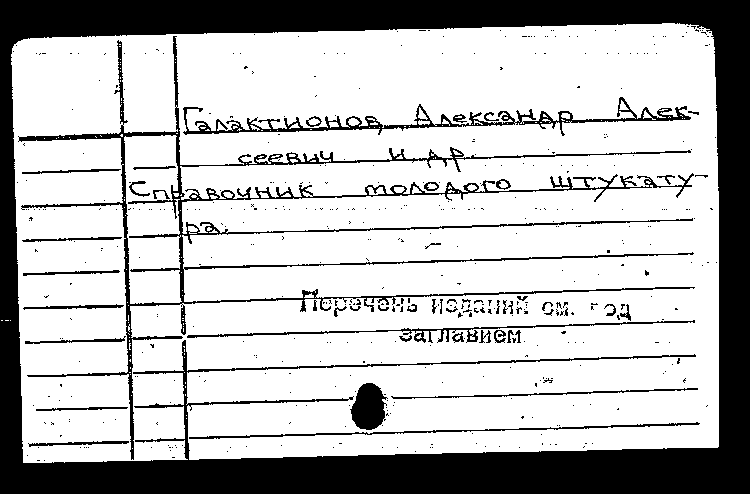 Галактионов Александр Алек-
сеевич и др.
Справочник молодого штукату-
ра.
Перечень изданий см. под
заглавием